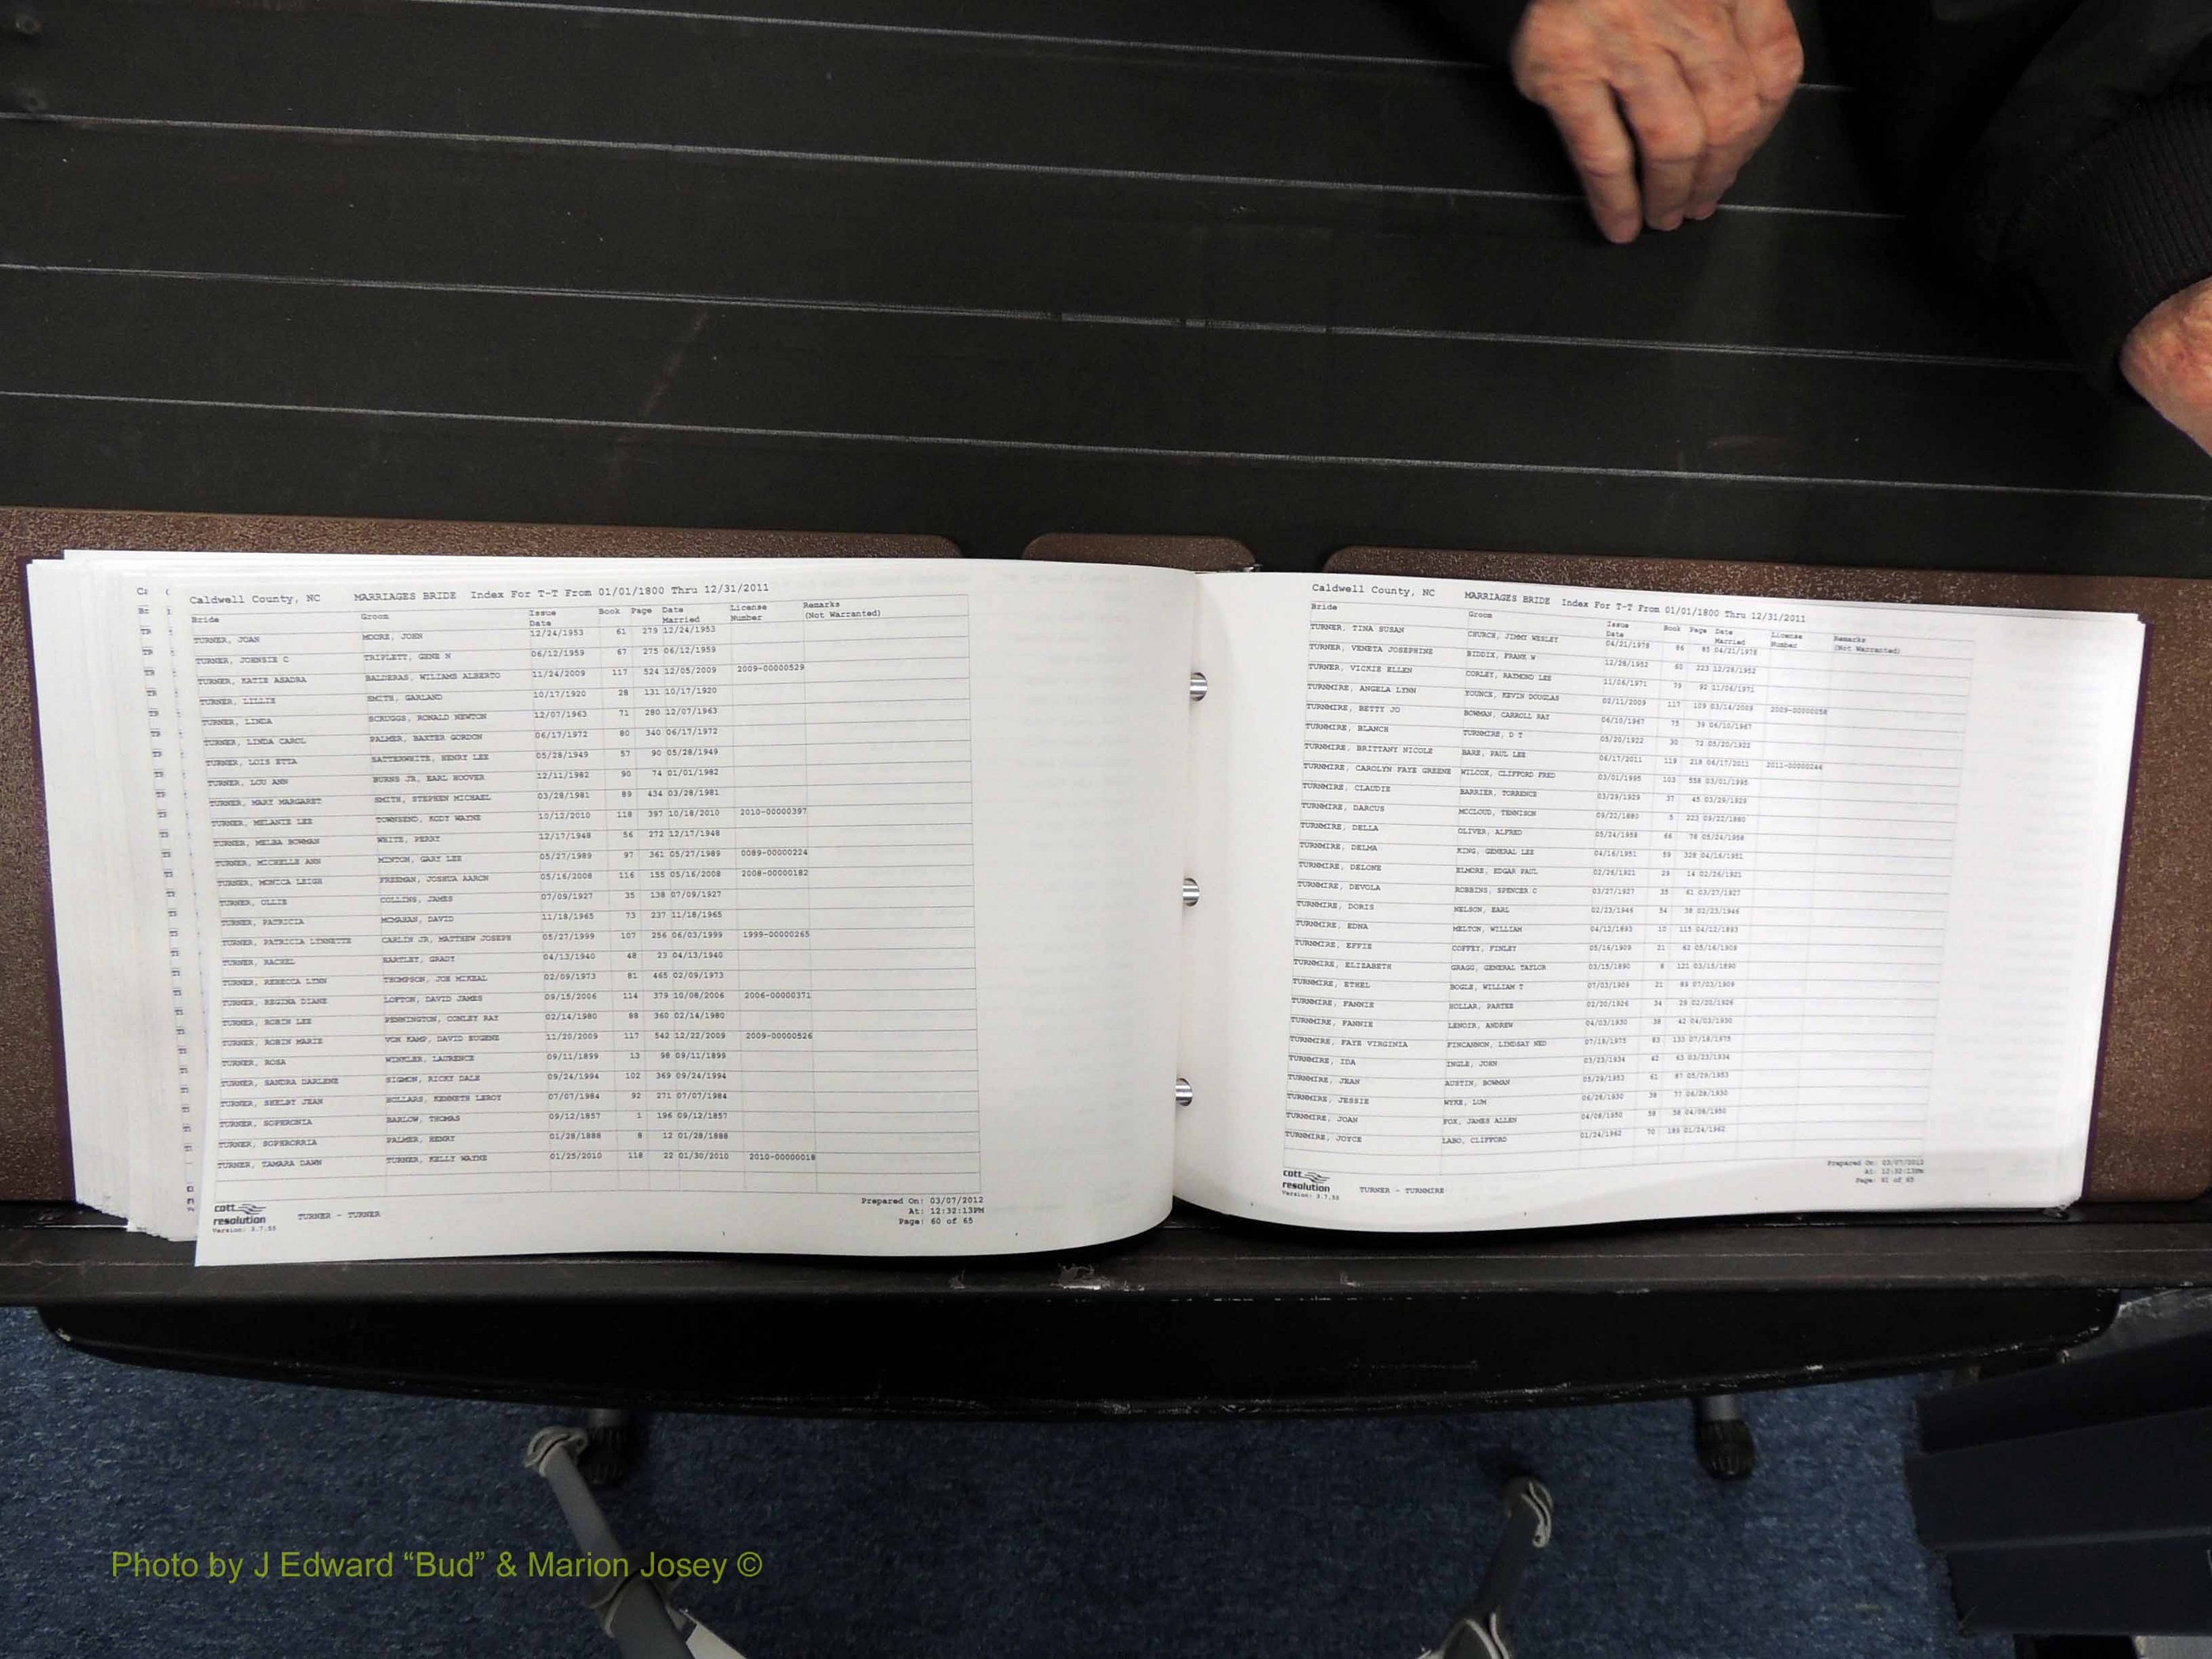 Caldwell County, NC MARRIAGES BRIDE Index For T-T From 01/01/1800 Thru 12/31/2011
Bride Groom Issue Date Book Page Date Married License Number Remarks (Not Warranted)
TURNER, JOAN MOORE, JOHN 12/24/1953 61 279 12/24/1953
TURNER, JOHNSIE C TRIPLETT, GENE N 06/12/1959 67 275 06/12/1959
TURNER, KATIE ASADRA BALDERAS, WILIAMS ALBERTO 11/24/2009 117 524 12/05/2009 2009-00000529
TURNER, LILLIE SMITH, GARLAND 10/17/1920 28 131 10/17/1920
TURNER, LINDA SCRUGGS, RONALD NEWTON 12/07/1963 71 280 12/07/1963
TURNER, LINDA CAROL PALMER, BAXTER GORDON 06/17/1972 80 340 06/17/1972
TURNER, LOIS ETTA SATTERWHITE, HENRY LEE 05/28/1949 57 90 05/28/1949
TURNER, LOU ANN BURNS JR, EARL HOOVER 12/11/1982 90 74 01/01/1982
TURNER, MARY MARGARET SMITH, STEPHEN MICHAEL 03/28/1981 89 434 03/28/1981
TURNER, MELANIE LEE TOWNSEND, KODY WAYNE 10/12/2010 118 397 10/18/2010 2010-00000397
TURNER, MELBA BOWMAN WHITE, PERRY 12/17/1948 56 272 12/17/1948
TURNER, MICHELLE ANN MINTON, GARY LEE 05/27/1989 97 361 05/27/1989 0089-00000224
TURNER, MONICA LEIGH FREEMAN, JOSHUA AARON 05/16/2008 116 155 05/16/2008 2008-00000182
TURNER, OLLIE COLLINS, JAMES 07/09/1927 35 138 07/09/1927
TURNER, PATRICIA MCMAHAN, DAVID 11/18/1965 73 237 11/18/1965
TURNER, PATRICIA LYNNETTE CARLIN JR, MATTHEW JOSEPH 05/27/1999 107 256 06/03/1999 1999-00000265
TURNER, RACHEL HARTLEY, GRADY 04/13/1940 48 23 04/13/1940
TURNER, REBECCA LYNN THOMPSON, JOE MIKEAL 02/09/1973 81 465 02/09/1973
TURNER, REGINA DIANE LOFTON, DAVID JAMES 09/15/2006 114 379 10/08/2006 2006-00000371
TURNER, ROBIN LEE PENNINGTON, CONLEY RAY 02/14/1980 88 360 02/14/1980
TURNER, ROBIN MARIE VON KAMP, DAVID EUGENE 11/20/2009 117 542 12/22/2009 2009-00000526
TURNER, ROSA WINKLER, LAURENCE 09/11/1899 13 98 09/11/1899
TURNER, SANDRA DARLENE SIGMON, RICKY DALE 09/24/1994 102 369 09/24/1994
TURNER, SHELBY JEAN HOLLARS, KENNETH LEROY 07/07/1984 92 271 07/07/1984
TURNER, SOPHRONIA BARLOW, THOMAS 09/12/1857 1 196 09/12/1857
TURNER, SOPHRORRIA PALMER, HENRY 01/28/1888 8 12 01/28/1888
TURNER, TAMARA DAWN TURNER, KELLY WAYNE 01/25/2010 118 22 01/30/2010 2010-00000018
cott resolution
Version: 3.7.55
TURNER - TURNER
Prepared On: 03/07/2012
At: 12:32:13PM
Page: 60 of 65
Caldwell County, NC MARRIAGES BRIDE Index For T-T From 01/01/1800 Thru 12/31/2011
Bride Groom Issue Date Book Page Date Married License Number Remarks (Not Warranted)
TURNER, TINA SUSAN CHURCH, JIMMY WESLEY 04/21/1978 86 85 04/21/1978
TURNER, VENETA JOSEPHINE BIDDIX, FRANK W 12/28/1952 60 223 12/28/1952
TURNER, VICKIE ELLEN CORLEY, RAYMOND LEE 11/06/1971 79 92 11/06/1971
TURNMIRE, ANGELA LYNN YOUNCE, KEVIN DOUGLAS 02/11/2009 117 109 03/14/2009 2009-00000058
TURNMIRE, BETTY JO BOWMAN, CARROLL RAY 06/10/1967 75 39 06/10/1967
TURNMIRE, BLANCH TURNMIRE, D T 05/20/1922 30 72 05/20/1922
TURNMIRE, BRITTANY NICOLE BARE, PAUL LEE 06/17/2011 119 218 06/17/2011 2011-00000244
TURNMIRE, CAROLYN FAYE GREENE WILCOX, CLIFFORD FRED 03/01/1995 103 558 03/01/1995
TURNMIRE, CLAUDIE BARRIER, TORRENCE 03/29/1929 37 45 03/29/1929
TURNMIRE, DARCUS MCCLOUD, TENNISON 09/22/1880 5 223 09/22/1880
TURNMIRE, DELLA OLIVER, ALFRED 05/24/1958 66 78 05/24/1958
TURNMIRE, DELMA KING, GENERAL LEE 04/16/1951 59 328 04/16/1951
TURNMIRE, DELONE ELMORE, EDGAR PAUL 02/26/1921 29 14 02/26/1921
TURNMIRE, DEVOLA ROBBINS, SPENCER C 03/27/1927 35 61 03/27/1927
TURNMIRE, DORIS NELSON, EARL 02/23/1946 54 38 02/23/1946
TURNMIRE, EDNA MELTON, WILLIAM 04/12/1893 10 115 04/12/1893
TURNMIRE, EFFIE COFFEY, FINLEY 05/16/1909 21 62 05/16/1909
TURNMIRE, ELIZABETH GRAGG, GENERAL TAYLOR 03/15/1890 8 121 03/15/1890
TURNMIRE, ETHEL BOGLE, WILLIAM T 07/03/1909 21 89 07/03/1909
TURNMIRE, FANNIE HOLLAR, PARTEE 02/20/1926 34 29 02/20/1926
TURNMIRE, FANNIE LENOIR, ANDREW 04/03/1930 38 42 04/03/1930
TURNMIRE, FAYE VIRGINIA FINCANNON, LINDSAY NED 07/18/1975 83 133 07/18/1975
TURNMIRE, IDA INGLE, JOHN 03/23/1934 42 63 03/23/1934
TURNMIRE, JEAN AUSTIN, BOWMAN 05/29/1953 61 87 05/29/1953
TURNMIRE, JESSIE WYKE, LUM 06/28/1930 38 77 06/28/1930
TURNMIRE, JOAN FOX, JAMES ALLEN 04/08/1950 58 58 04/08/1950
TURNMIRE, JOYCE LABO, CLIFFORD 01/24/1962 70 189 01/24/1962
cott resolution
Version: 3.7.55
TURNER - TURNMIRE
Prepared On: 03/07/2012
At: 12:32:13PM
Page: 61 of 65
Photo by J Edward “Bud” & Marion Josey ©